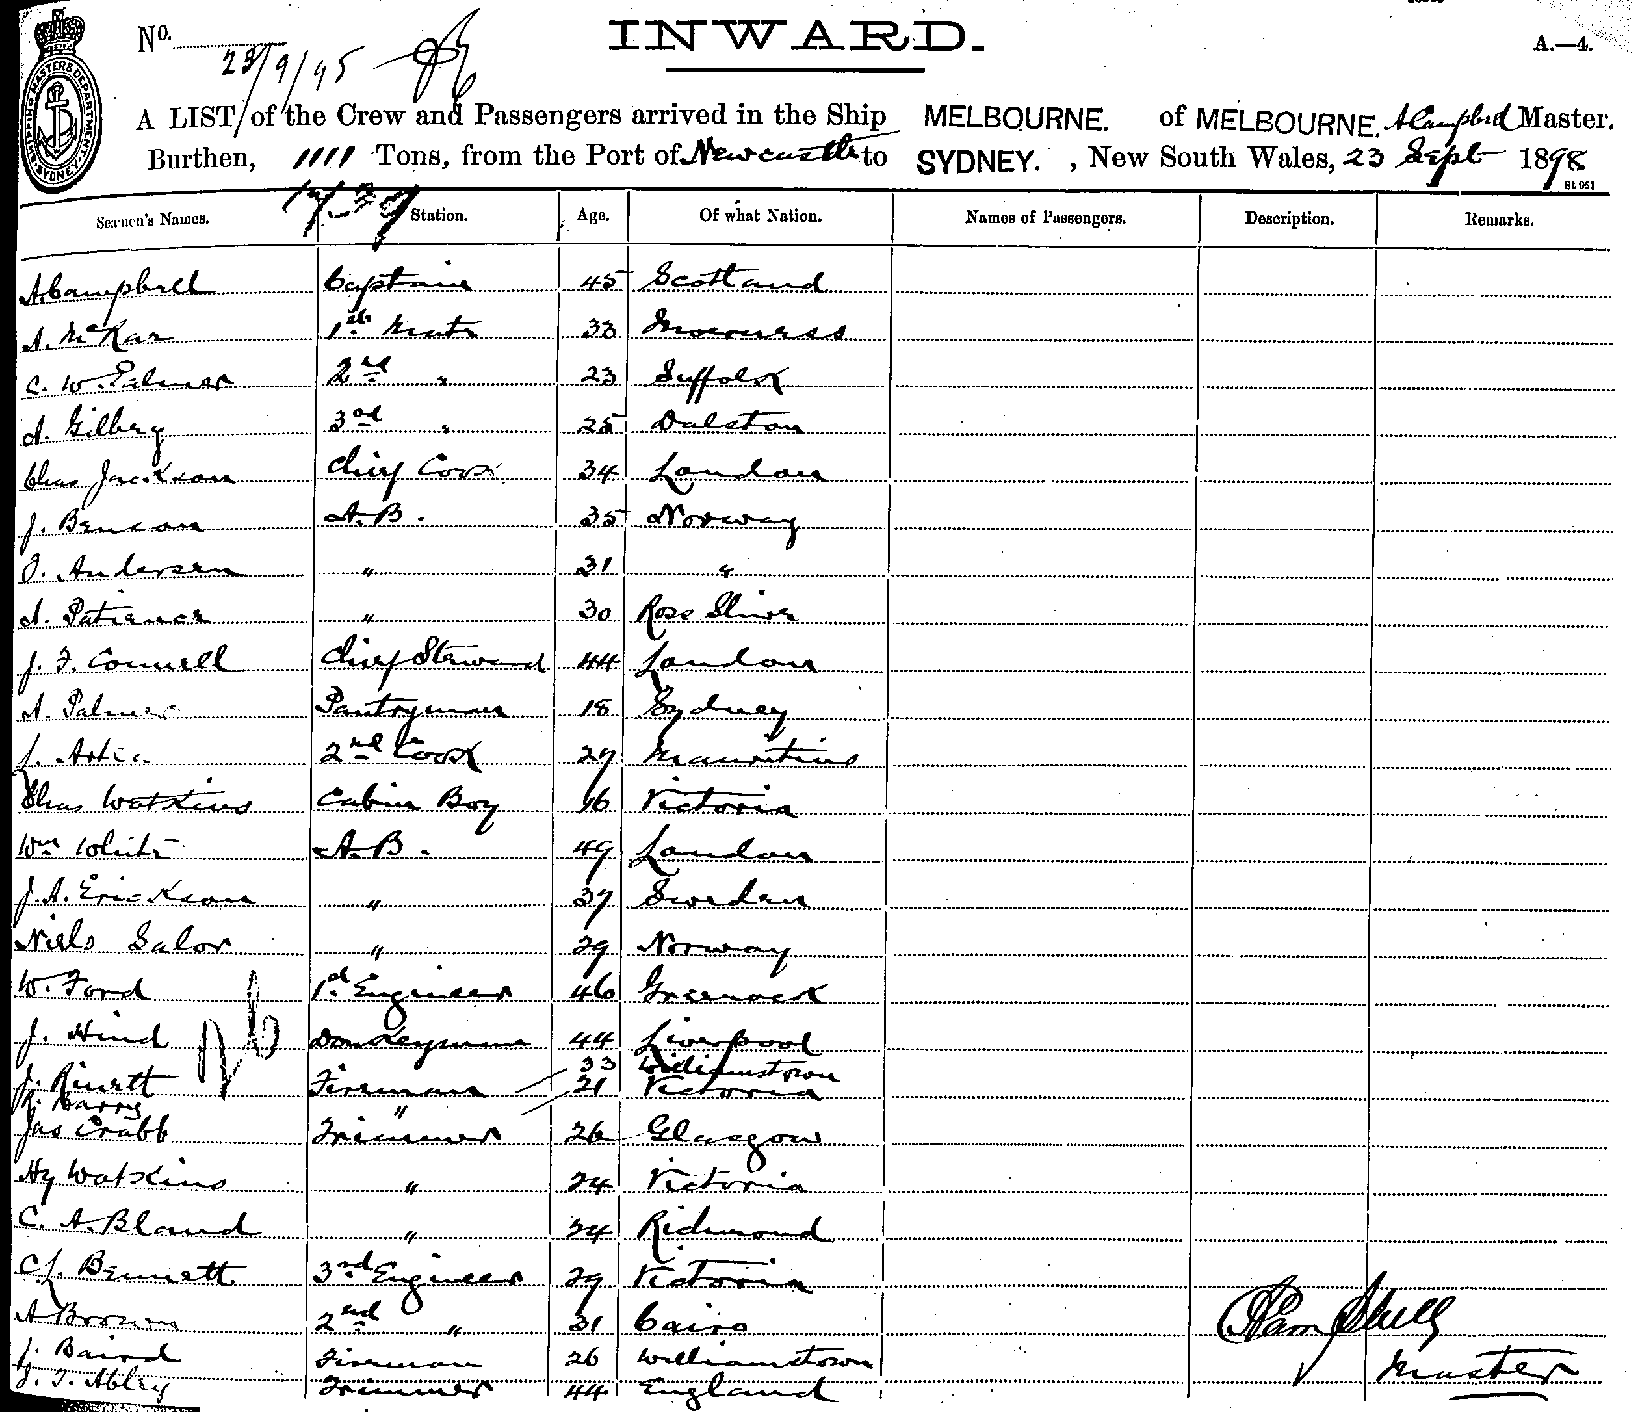 INWARD.
No. 23/9/95
A.—4.
A LIST of the Crew and Passengers arrived in the Ship MELBOURNE. of MELBOURNE. A Campbell Master.
Burthen, 1111 Tons, from the Port of Newcastle to SYDNEY. , New South Wales, 23 Sept 1898
Seamen's Names. Station. Age. Of what Nation. Names of Passengers. Description. Remarks.
A Campbell Captain 45 Scotland
A. McKar 1st Mate 33 Inverness
C. W. Palmer 2nd " 23 Suffolk
A. Gilbery 3rd " 25 Dalston
Chas Jackson Chief Cook 34 London
J. Bencon A.B. 35 Norway
O. Andersen " 31 "
A. Patience " 30 Ross Shire
J. F. Connell Chief Steward 44 London
A. Palmer Pantryman 18 Sydney
2nd Cook 29 Mauritius
Chas Watkins Cabin Boy 16 Victoria
Wm White A.B. 49 London
J. A. Erickson " 37 Sweden
Niels Salor " 29 Norway
W. Ford 1st Engineer 46 Greenock
J. Hind Donkeyman 44 Liverpool
J. Rinett Fireman 33 Williamstown
R. Barry " 21 Victoria
Jas Crabb Trimmer 26 Glasgow
Hy Watkins " 24 Victoria
C. A. Bland " 24 Richmond
C J. Bennett 3rd Engineer 29 Victoria
A Brown 2nd " 31 Cairo
J. Baird Fireman 26 Williamstown
J. T. Abley Trimmer 44 England
A Campbell
Master